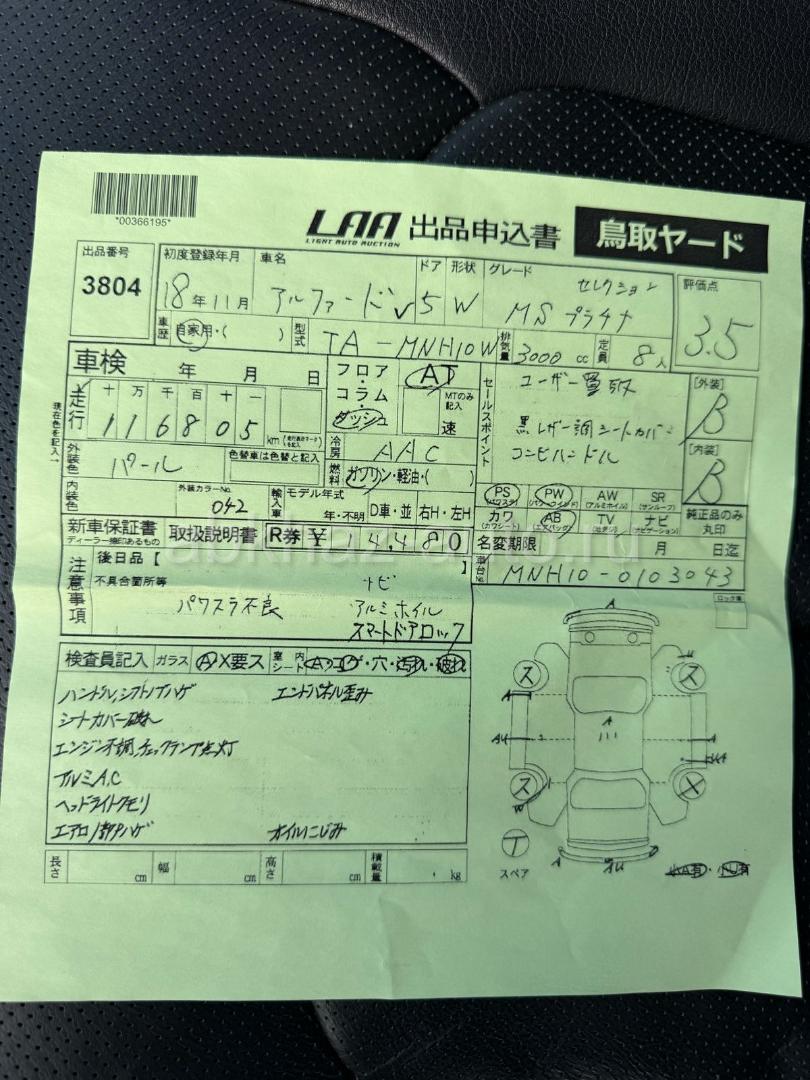 *00366195*
LAA 出品申込書 鳥取ヤード
LIGHT AUTO AUCTION
出品番号 3804
初度登録年月 18年11月
車名 アルファードV
ドア 5
形状 W
グレード MS プラチナ セレクション
評価点 3.5
車歴 自家用・( )
型式 TA-MNH10W
排気量 3000 cc
定員 8人
車検 年 月 日
フロア・コラム・ダッシュ
AT
MTのみ記入
速
セールスポイント
ユーザー買取
黒レザー調シートカバー
コンビハンドル
[外装] B
[内装] B
走行 十 万 千 百 十 一
116805 km
現在色を記入→
外装色 パール
色替車は色替と記入
冷房 AAC
燃料 ガソリン・軽油・( )
内装色
外装カラーNo. 042
輸入車 モデル年式 年・不明 D車・並 右H・左H
PS (パワステ) PW (パワーウインド) AW (アルミホイル) SR (サンルーフ)
カワ (カワシート) AB (エアバッグ) TV ナビ (ナビゲーション)
純正品のみ丸印
新車保証書 取扱説明書 R券 ¥ 14,480
ディーラー捺印あるもの
名変期限 月 日迄
後日品【 】
車台No. MNH10-0103043
注意事項
不具合箇所等
パワスラ不良
ナビ
アルミホイル
スマートドアロック
検査員記入 ガラス A X要ス 室内シート A・コゲ・穴・汚れ・破れ
ハンドル,シフトノブハゲ エンドパネル歪み
シートカバー破れ
エンジン不調,チェックランプ点灯
アルミA,C
ヘッドライトクモリ
エアロ1部ハゲ オイルにじみ
A
ス ス
A A
ス
W
T
スペア
A
長さ cm 幅 cm 高さ cm 積載量 kg